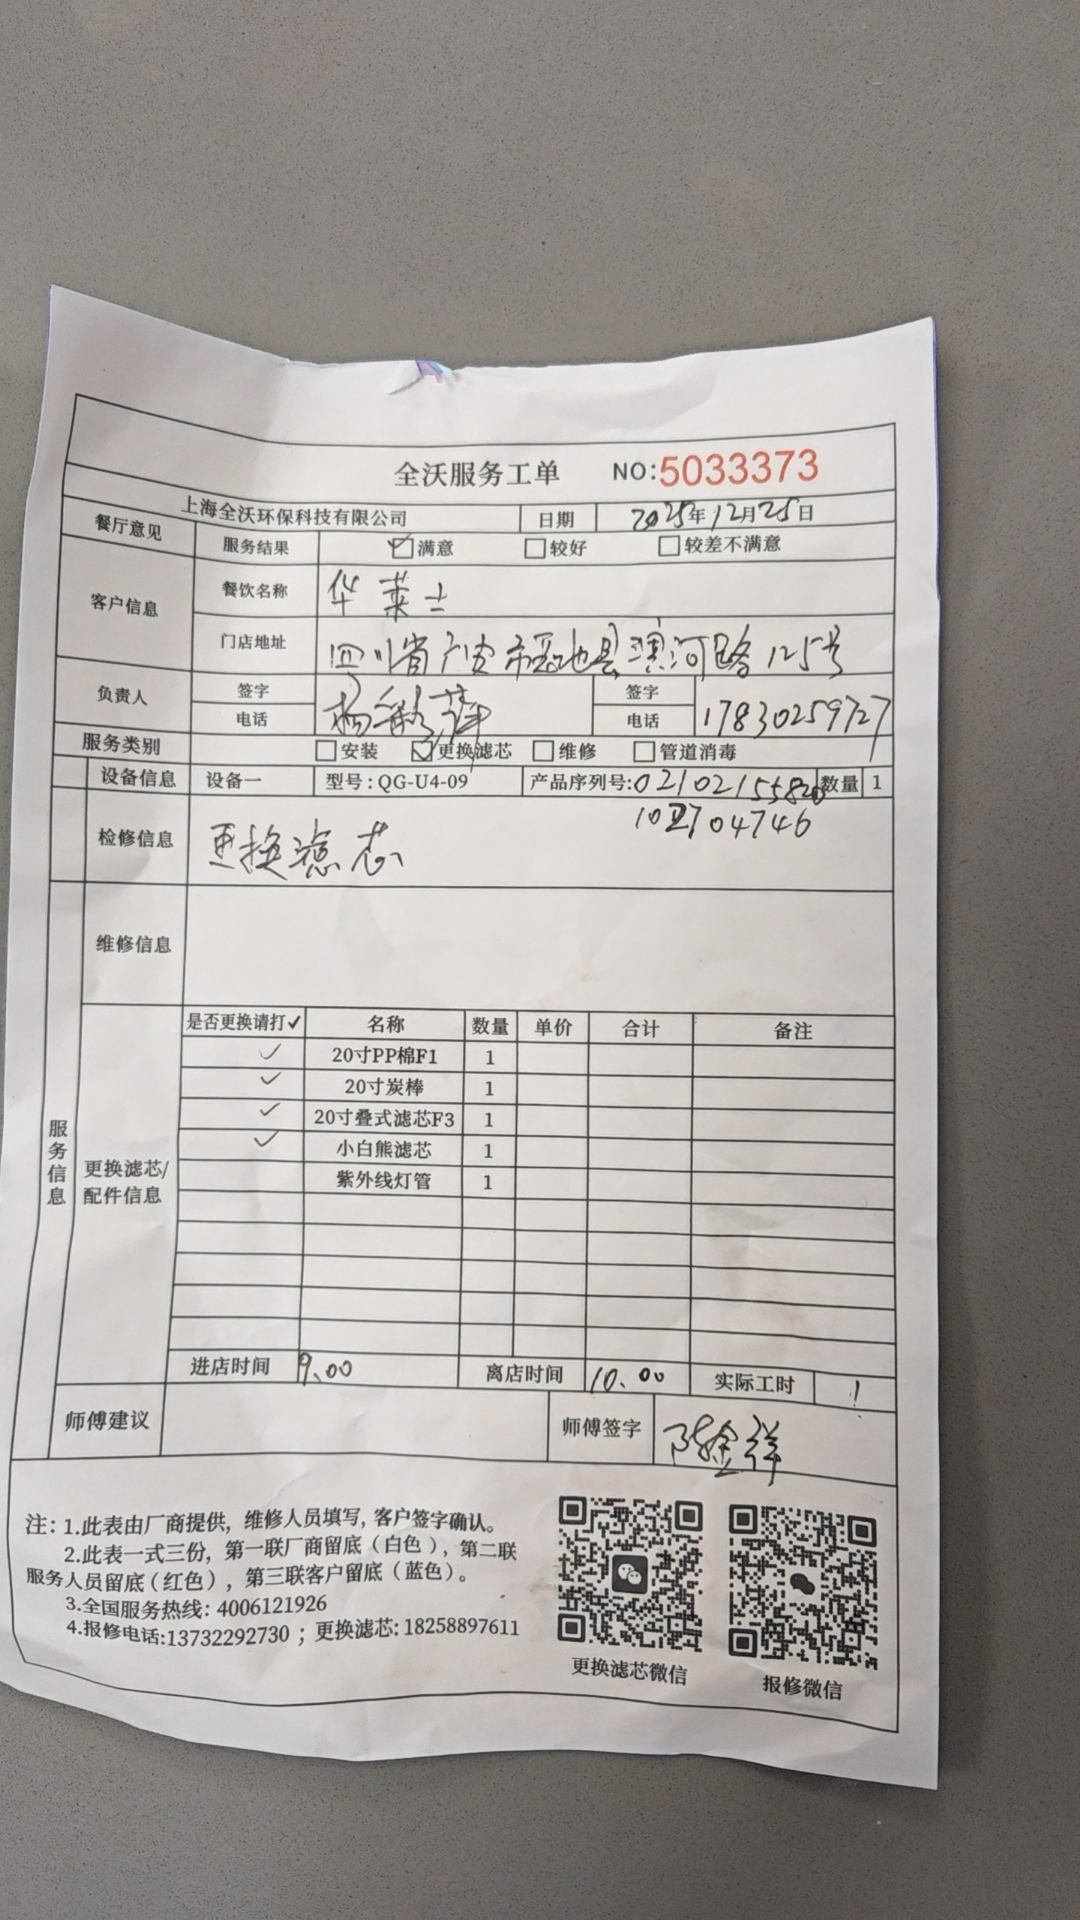 全沃服务工单 NO:5033373
上海全沃环保科技有限公司 日期 2025年12月25日
餐厅意见 服务结果 ☑满意 □较好 □较差不满意
客户信息 餐饮名称 华莱士
门店地址 四川省广安市 县 河路125号
负责人 签字 杨 萍 签字
电话 电话 17830259727
服务类别 □安装 ☑更换滤芯 □维修 □管道消毒
设备信息 设备一 型号:QG-U4-09 产品序列号:0210215582 数量 1
704746
检修信息 更换滤芯
维修信息
服务信息
更换滤芯/配件信息
是否更换请打✓ 名称 数量 单价 合计 备注
✓ 20寸PP棉F1 1
✓ 20寸炭棒 1
✓ 20寸叠式滤芯F3 1
✓ 小白熊滤芯 1
紫外线灯管 1
进店时间 9.00 离店时间 10.00 实际工时 1
师傅建议 师傅签字 陈金祥
注：1.此表由厂商提供，维修人员填写，客户签字确认。
2.此表一式三份，第一联厂商留底（白色），第二联
服务人员留底（红色），第三联客户留底（蓝色）。
3.全国服务热线：4006121926
4.报修电话:13732292730；更换滤芯:18258897611
更换滤芯微信 报修微信